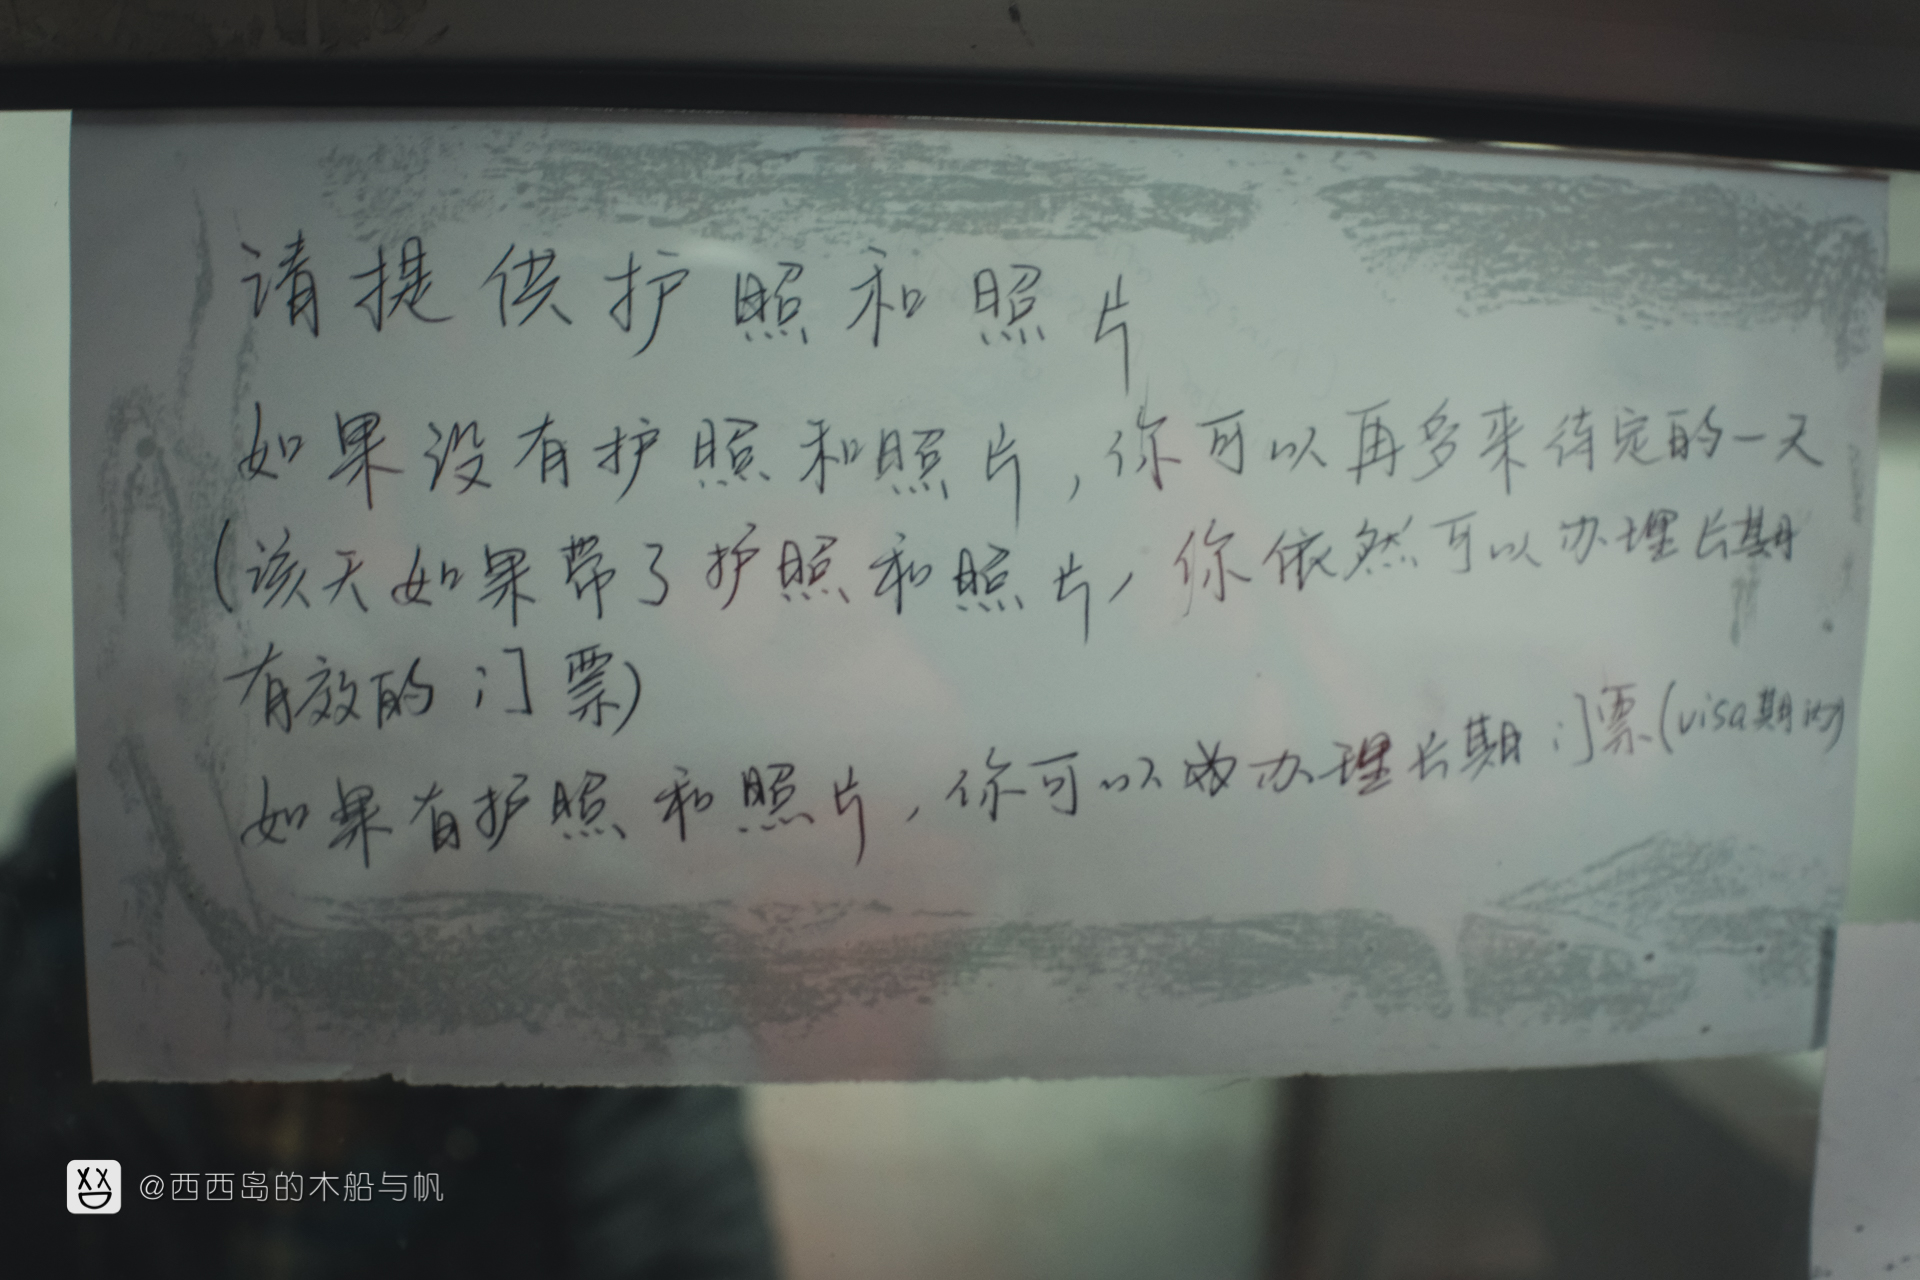 请提供护照和照片
如果没有护照和照片，你可以再多来待定的一天
(该天如果带了护照和照片，你依然可以办理长期
有效的门票)
如果有护照和照片，你可以办理长期门票(visa期内)
@西西岛的木船与帆